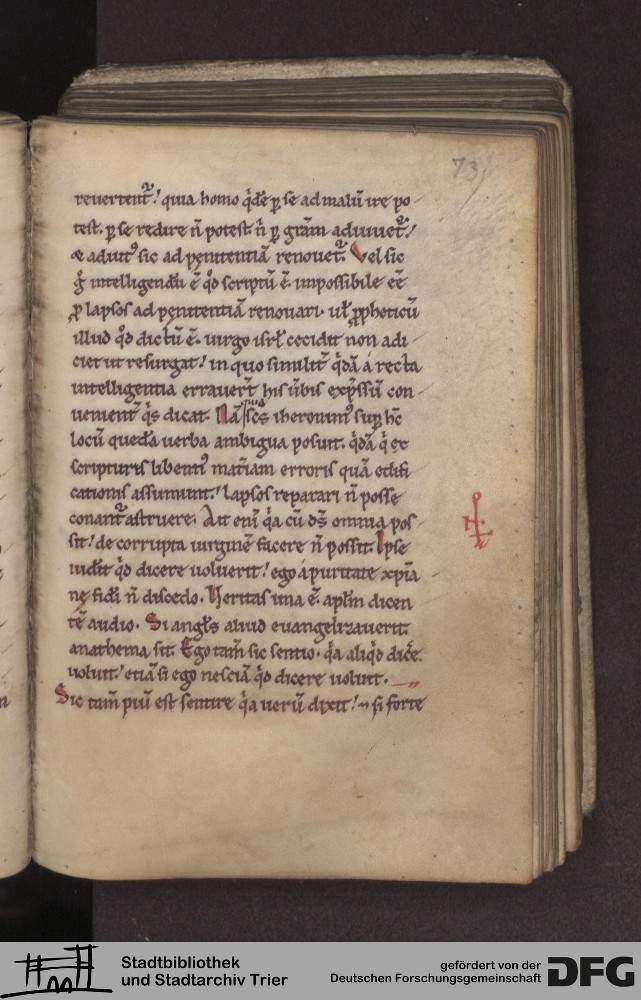 73
reuertent᷑. quia homo q̇dē ꝑ se ad malū ire po
test. ꝑ se redire n̄ potest n̄ ꝑ gr̄am adiuuet᷑.
& adiut᷒ sic ad pęnitentiā renouet᷑. Vel sic
g̊ intelligendū ē q̊d scriptū ē. impossibile eē
ꝓ lapsos ad pęnitentiā renouari. ul̄ ꝓpheticū
illud q̊d dictū ē. uirgo isrł cecidit non adi
ciet ut resurgat. in quo similit̄ q̇dā á recta
intelligentia errauer̄t his ūbis exp̄ssū con
uenient̄ q̇s dicat. Nā sc̄s iheronim᷒ suꝑ hc̄
locū quedā uerba ambigua posuit. q̇dā q̇ ex
scripturis libenti᷒ mat̄iam erroris quā edifi
cationis assumunt. lapsos reparari n̄ posse
conant᷑ astruere. Ait eni q̇a cū dš omnia pos
sit. de corrupta uirginē facere n̄ possit. Ipse
uidit q̊d dicere uoluerit. ego á puritate xp̄ia
nę fidi n̄ discedo. Ueritas una ē. apłm dicen
tē audio. Si angłs aliud euangelizauerit
anathema sit. Ego tam̄ sic sentio. q̇a aliq̊d dic̄e
uoluit. etiā si ego nesciā q̊d dicere uoluit.
Sic tam̄ piū est sentire q̇a uerū dixit. ⁊ si forte
Stadtbibliothek
und Stadtarchiv Trier
gefördert von der
Deutschen Forschungsgemeinschaft
DFG